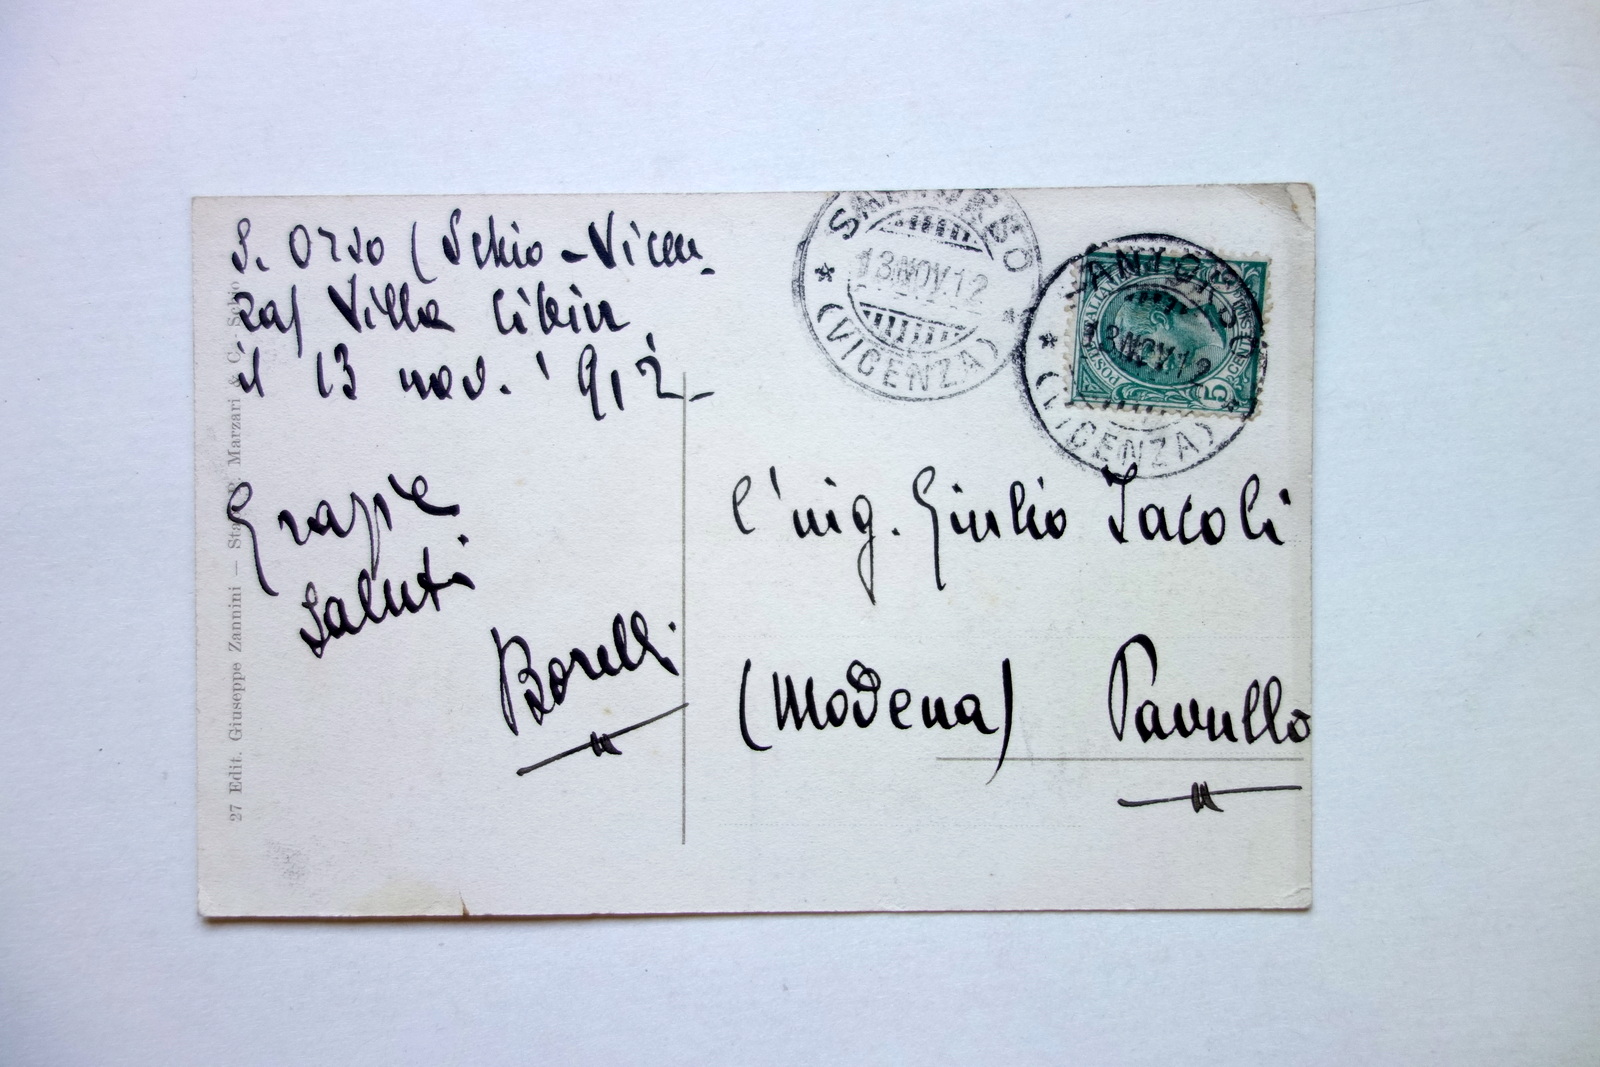 S. Orso (Schio - Vicen-
za) Villa
il 13 nov. '912 -
Grazie
Saluti
Borelli
27 Edit. Giuseppe Zannini — Marzari & C. Schio
SANTORSO
13 NOV. 12
(VICENZA)
SANTORSO
13 NOV. 12
(VICENZA)
POSTE ITALIANE
CENT. 5
L'ing. Giulio Jacoli
(Modena) Pavullo